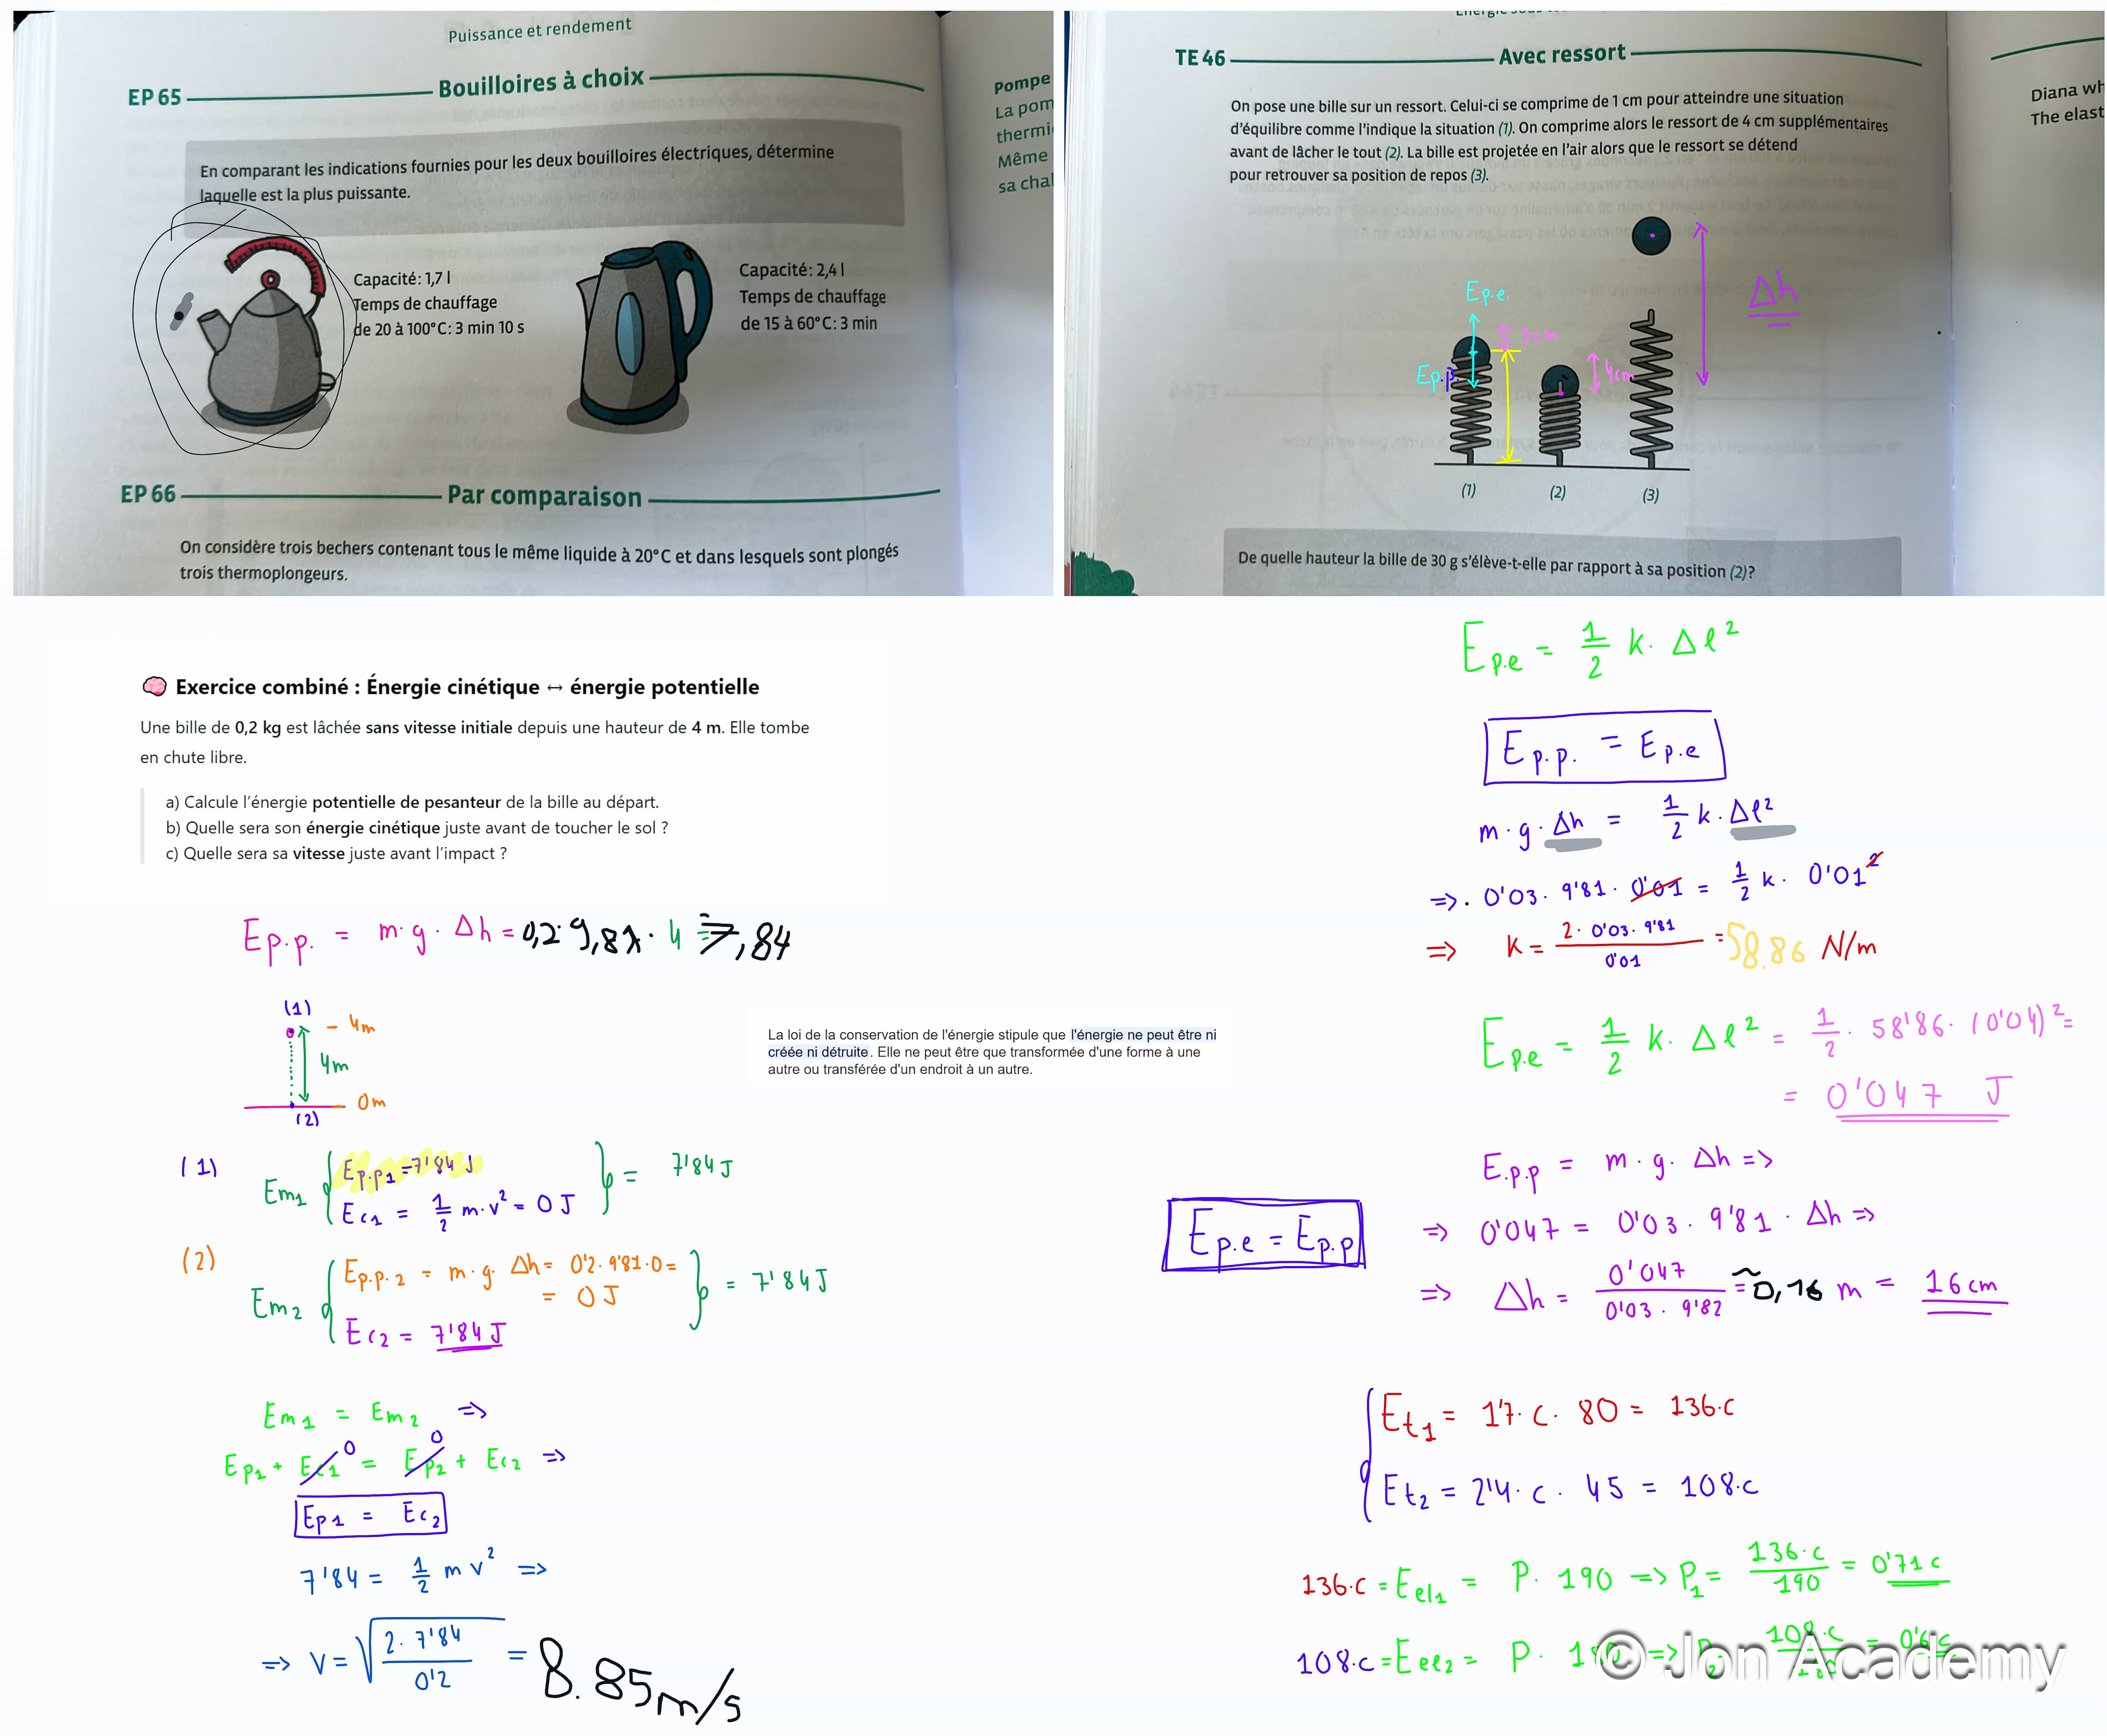 Puissance et rendement
EP 65
Bouilloires à choix
En comparant les indications fournies pour les deux bouilloires électriques, détermine
laquelle est la plus puissante.
Capacité: 1,7 l
Temps de chauffage
de 20 à 100°C: 3 min 10 s
Capacité: 2,4 l
Temps de chauffage
de 15 à 60°C: 3 min
EP 66
Par comparaison
On considère trois bechers contenant tous le même liquide à 20°C et dans lesquels sont plongés
trois thermoplongeurs.
Pompe
La pom
thermi
Même
sa chal
TE 46
Avec ressort
On pose une bille sur un ressort. Celui-ci se comprime de 1 cm pour atteindre une situation
d'équilibre comme l'indique la situation (1). On comprime alors le ressort de 4 cm supplémentaires
avant de lâcher le tout (2). La bille est projetée en l'air alors que le ressort se détend
pour retrouver sa position de repos (3).
Diana wh
The elast
Ep.e.
1cm
Ep.p
4cm
Δh
(1)
(2)
(3)
De quelle hauteur la bille de 30 g s'élève-t-elle par rapport à sa position (2)?
🧠 Exercice combiné : Énergie cinétique ↔ énergie potentielle
Une bille de 0,2 kg est lâchée sans vitesse initiale depuis une hauteur de 4 m. Elle tombe
en chute libre.
a) Calcule l'énergie potentielle de pesanteur de la bille au départ.
b) Quelle sera son énergie cinétique juste avant de toucher le sol ?
c) Quelle sera sa vitesse juste avant l'impact ?
Ep.p. = m·g·Δh = 0,2·9,81·4 = 7,84
(1)
- 4m
4m
0m
(2)
La loi de la conservation de l'énergie stipule que l'énergie ne peut être ni
créée ni détruite. Elle ne peut être que transformée d'une forme à une
autre ou transférée d'un endroit à un autre.
(1)
Em1
Ep.p1 = 7'84 J
Ec1 = 1/2 m·v² = 0 J
= 7'84 J
(2)
Em2
Ep.p.2 = m·g·Δh = 0'2·9'81·0 =
= 0 J
Ec2 = 7'84 J
= 7'84 J
Em1 = Em2 =>
Ep1 + Ec1 0 = Ep2 0 + Ec2 =>
Ep1 = Ec2
7'84 = 1/2 m v² =>
=> V = √(2·7'84 / 0'2) = 8.85 m/s
Ep.e = 1/2 k·Δl²
Ep.p. = Ep.e
m·g·Δh = 1/2 k·Δl²
=>. 0'03·9'81·0'01 = 1/2 k·0'01²
=> k = 2·0'03·9'81 / 0'01 = 58.86 N/m
Ep.e = 1/2 k·Δl² = 1/2·58'86·(0'04)² =
= 0'047 J
E.p.p = m·g·Δh =>
Ep.e = Ep.p
=> 0'047 = 0'03·9'81·Δh =>
=> Δh = 0'047 / 0'03·9'82 ≈ 0,16 m = 16 cm
Et1 = 1'7·c·80 = 136·c
Et2 = 2'4·c·45 = 108·c
136·c = Eel1 = P·190 => P1 = 136·c / 190 = 0'71 c
108·c = Eel2 = P·180 => P2 = 108·c / 180 = 0'6 c
© Jon Academy